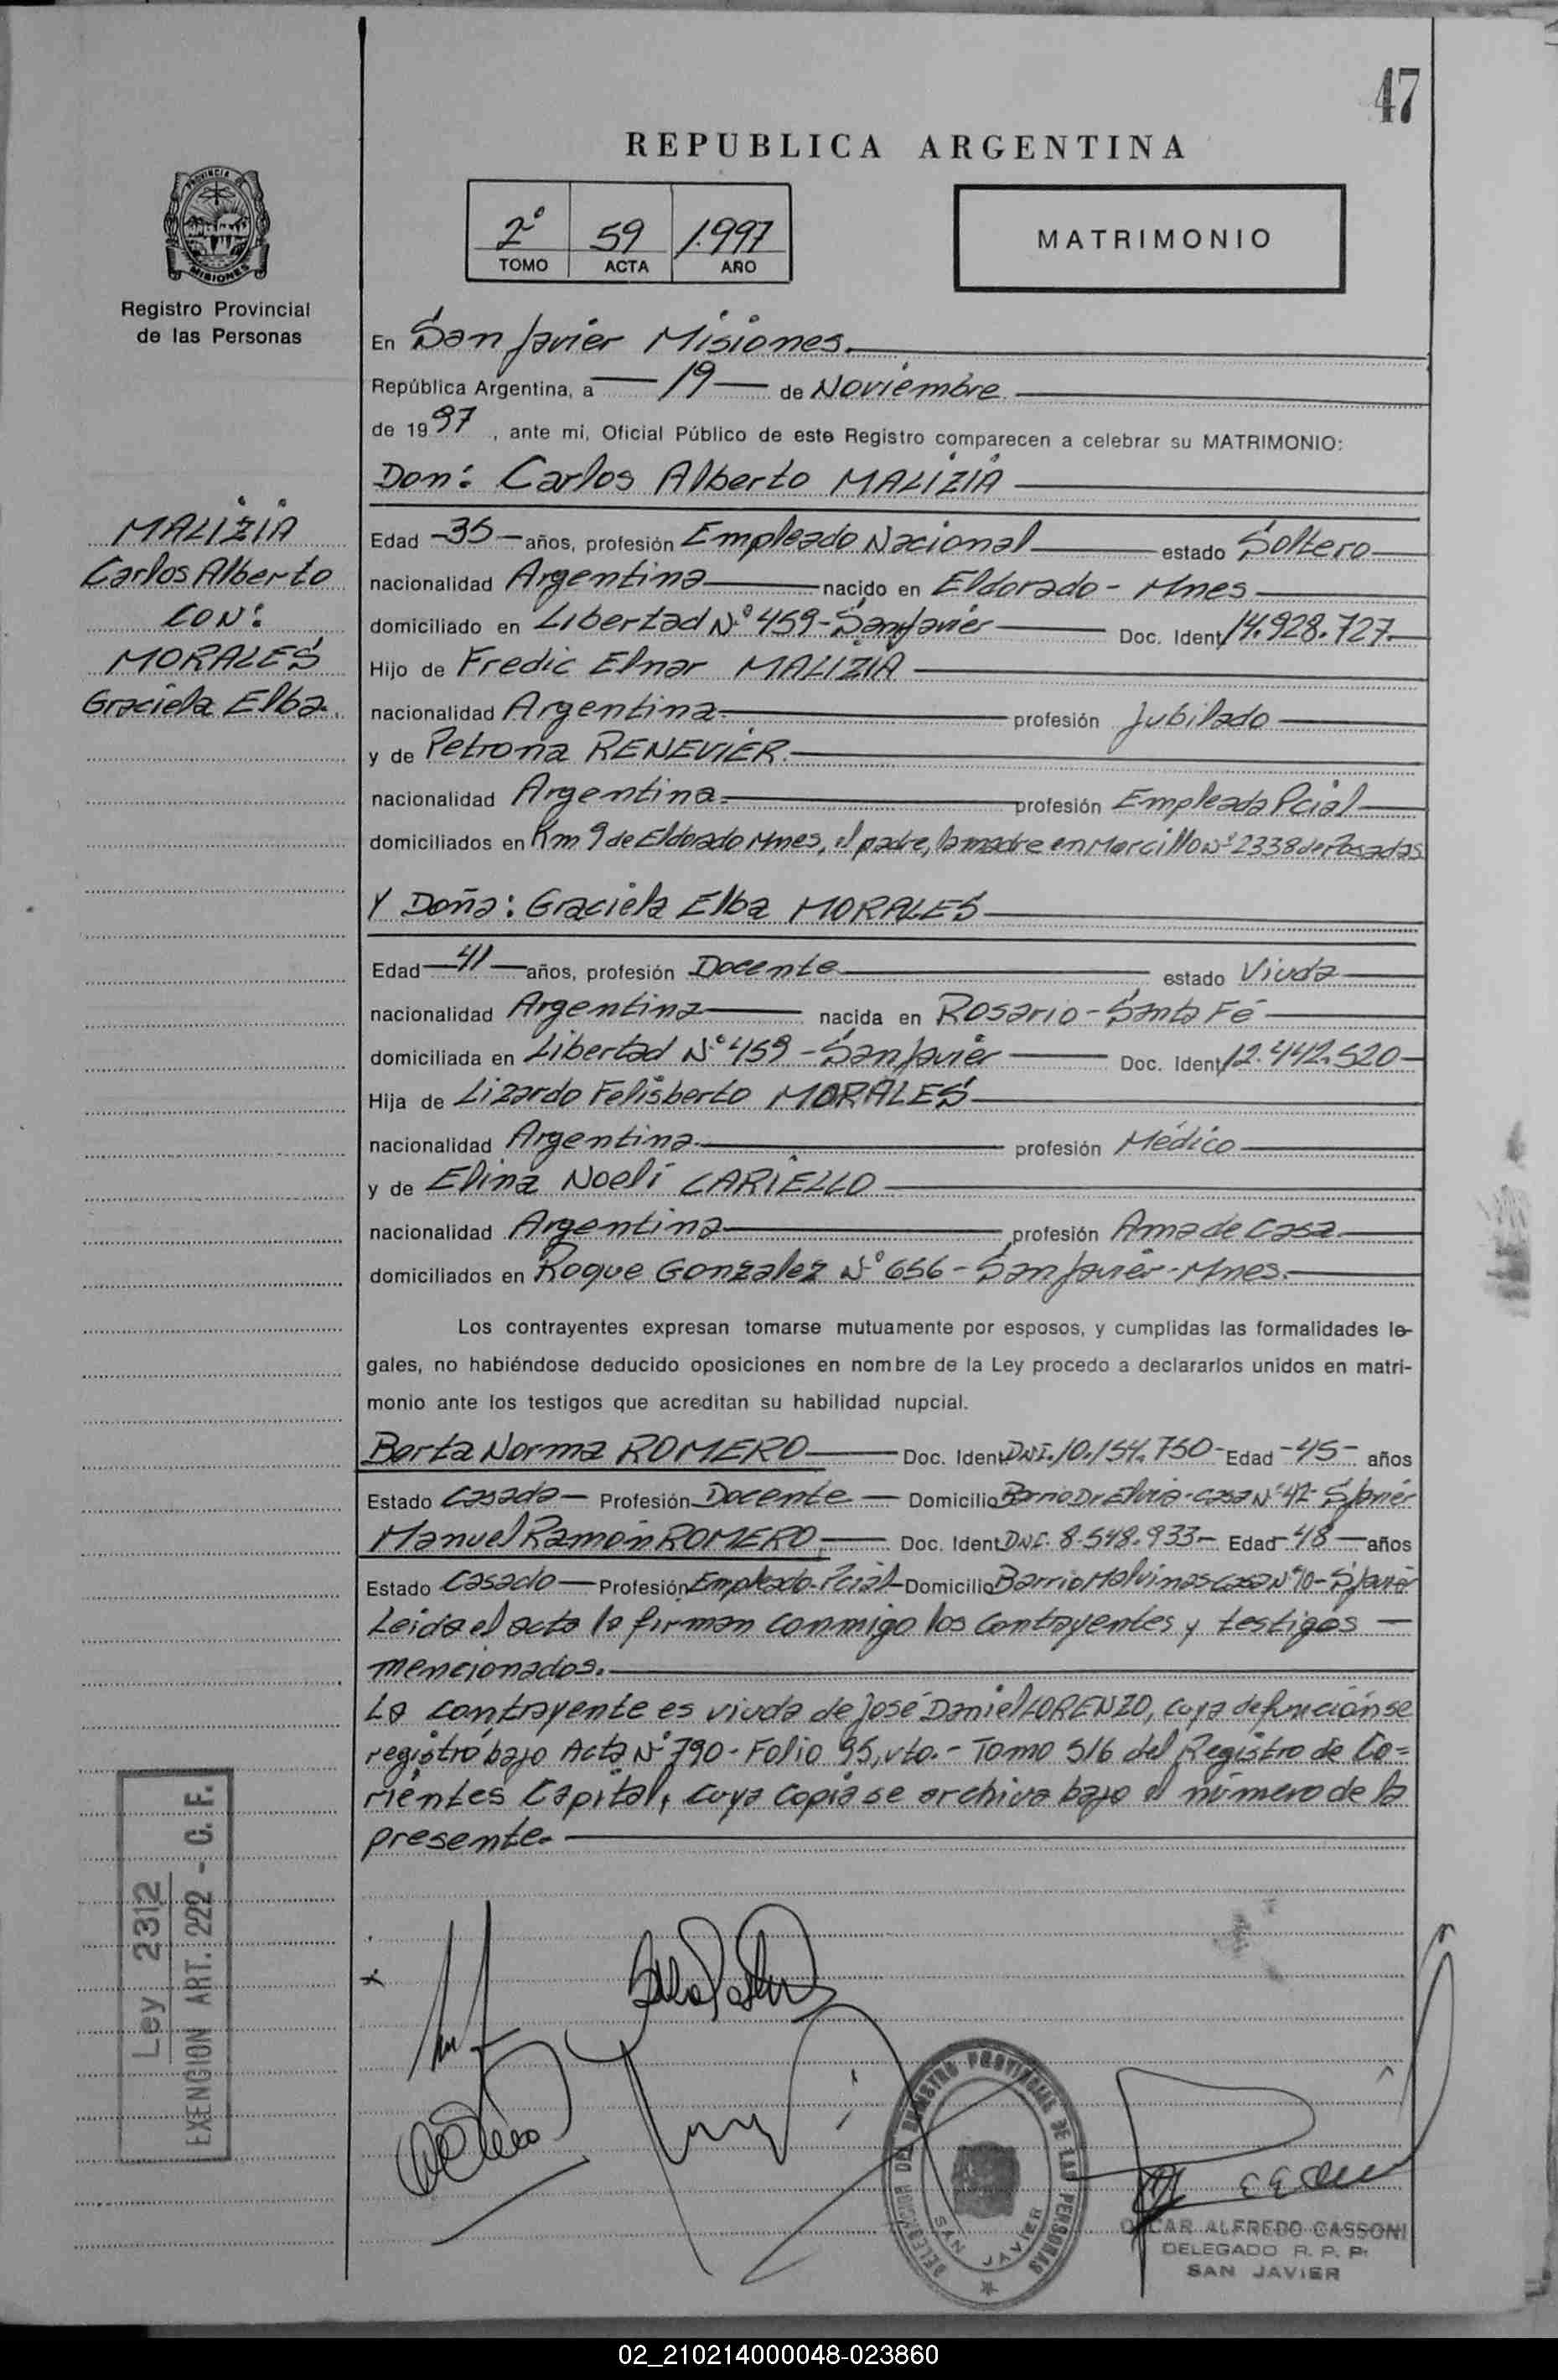 47
REPUBLICA ARGENTINA
PROVINCIA DE
MISIONES
Registro Provincial
de las Personas
2º 59 1.997
TOMO ACTA AÑO
MATRIMONIO
En San Javier Misiones.
República Argentina, a 19 de Noviembre
de 1997, ante mi, Oficial Público de este Registro comparecen a celebrar su MATRIMONIO:
Don: Carlos Alberto MALIZIA
MALIZIA
Carlos Alberto
CON:
MORALES
Graciela Elba.
Edad -35- años, profesión Empleado Nacional estado Soltero
nacionalidad Argentina nacido en Eldorado - Mnes
domiciliado en Libertad Nº 459 - San Javier Doc. Ident 14.928.727.
Hijo de Fredic Elnar MALIZIA
nacionalidad Argentina profesión Jubilado
y de Petrona RENEVIER.
nacionalidad Argentina. profesión Empleada Pcial
domiciliados en Km 9 de Eldorado Mnes, el padre, la madre en Marcillo Nº 2338 de Posadas
Y Doña: Graciela Elba MORALES
Edad 41 años, profesión Docente estado Viuda
nacionalidad Argentina nacida en Rosario - Santa Fé
domiciliada en Libertad Nº 459 - San Javier Doc. Ident 12.442.520
Hija de Lizardo Felisberto MORALES
nacionalidad Argentina profesión Médico
y de Elina Noelí CARIELLO
nacionalidad Argentina profesión Ama de Casa
domiciliados en Roque Gonzalez Nº 656 - San Javier - Mnes.
Los contrayentes expresan tomarse mutuamente por esposos, y cumplidas las formalidades le-
gales, no habiéndose deducido oposiciones en nombre de la Ley procedo a declararlos unidos en matri-
monio ante los testigos que acreditan su habilidad nupcial.
Berta Norma ROMERO Doc. Ident DNI. 10.154.750 - Edad -45- años
Estado Casada - Profesión Docente - Domicilio Barrio Dr Elvira - casa Nº 42 - S/Javier
Manuel Ramón ROMERO, Doc. Ident DNI. 8.548.933 - Edad 48 años
Estado Casado - Profesión Empleado Pcial - Domicilio Barrio Malvinas casa Nº 10 - S/Javier
Leida el acta la firman conmigo los contrayentes y testigos -
mencionados.
La contrayente es viuda de José Daniel LORENZO, cuya defunción se
registró bajo Acta Nº 790 - Folio 95, vto. - Tomo 516 del Registro de Co=
rrientes Capital, cuya copia se archiva bajo el número de la
presente.
Ley 2312
EXENCION ART. 222 - C. F.
DELEGACION DEL REGISTRO PROVINCIAL DE LAS PERSONAS
SAN JAVIER
OSCAR ALFREDO CASSONI
DELEGADO R. P. P.
SAN JAVIER
02_210214000048-023860